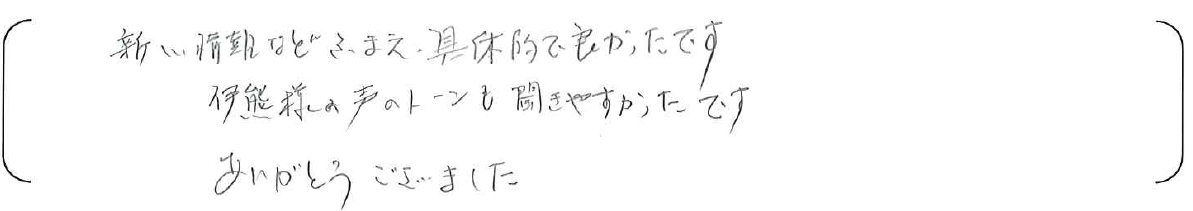 新しい情報などふまえ、具体的で良かったです
伊熊様の声のトーンも聞きやすかったです
ありがとうございました